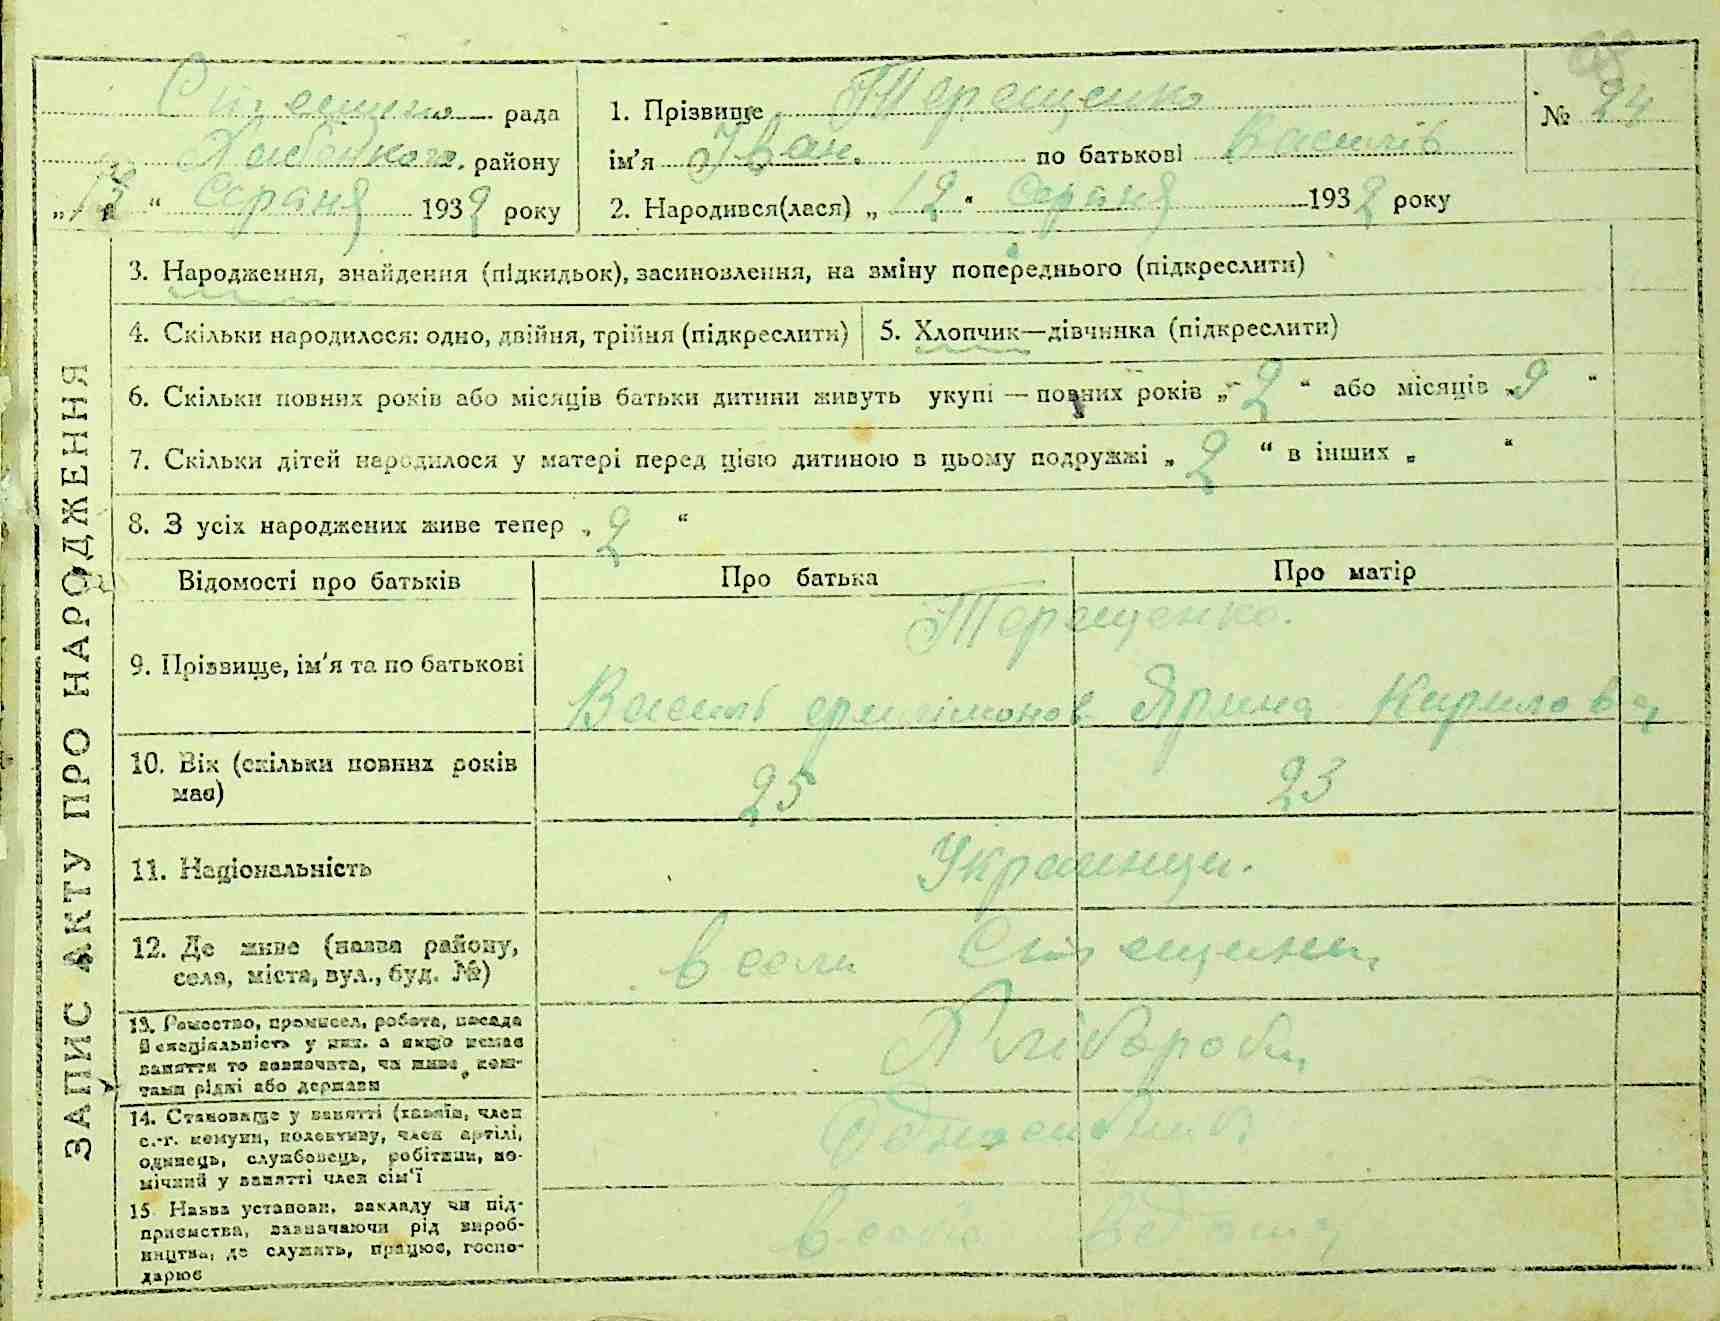 рада
району
„ “ серпня 1932 року
1. Прізвище Терещенко
ім’я Іван. по батькові Василів
2. Народився(лася) „ 12 “ серпня 1932 року
№ 24
ЗАПИС АКТУ ПРО НАРОДЖЕННЯ
3. Народження, знайдення (підкидьок), засиновлення, на зміну попереднього (підкреслити)
4. Скільки народилося: одно, двійня, трійня (підкреслити)
5. Хлопчик—дівчинка (підкреслити)
6. Скільки повних років або місяців батьки дитини живуть укупі — повних років „ 2 “ або місяців „ “
7. Скільки дітей народилося у матері перед цією дитиною в цьому подружжі „ 2 “ в інших „ “
8. З усіх народжених живе тепер „ 2 “
Відомості про батьків
Про батька
Про матір
9. Прізвище, ім’я та по батькові
Терещенко.
Василь Филімонов Ярина Кирилова
10. Вік (скільки повних років
має)
25
23
11. Національність
Українци.
12. Де живе (назва району,
села, міста, вул., буд. №)
в сели
13. Ремество, промисел, робота, посада
й спеціяльність у них, а якщо немає
заняття то зазначити, чи живе кош-
тами рідні або держави
Хлібороби
14. Становище у занятті (хазяїн, член
с.-г. комуни, колективу, член артілі,
одинець, службовець, робітник, по-
мічний у занятті член сім’ї
15. Назва установи, закладу чи під-
приємства, зазначаючи рід вироб-
ництва, де служить, працює, госпо-
дарює